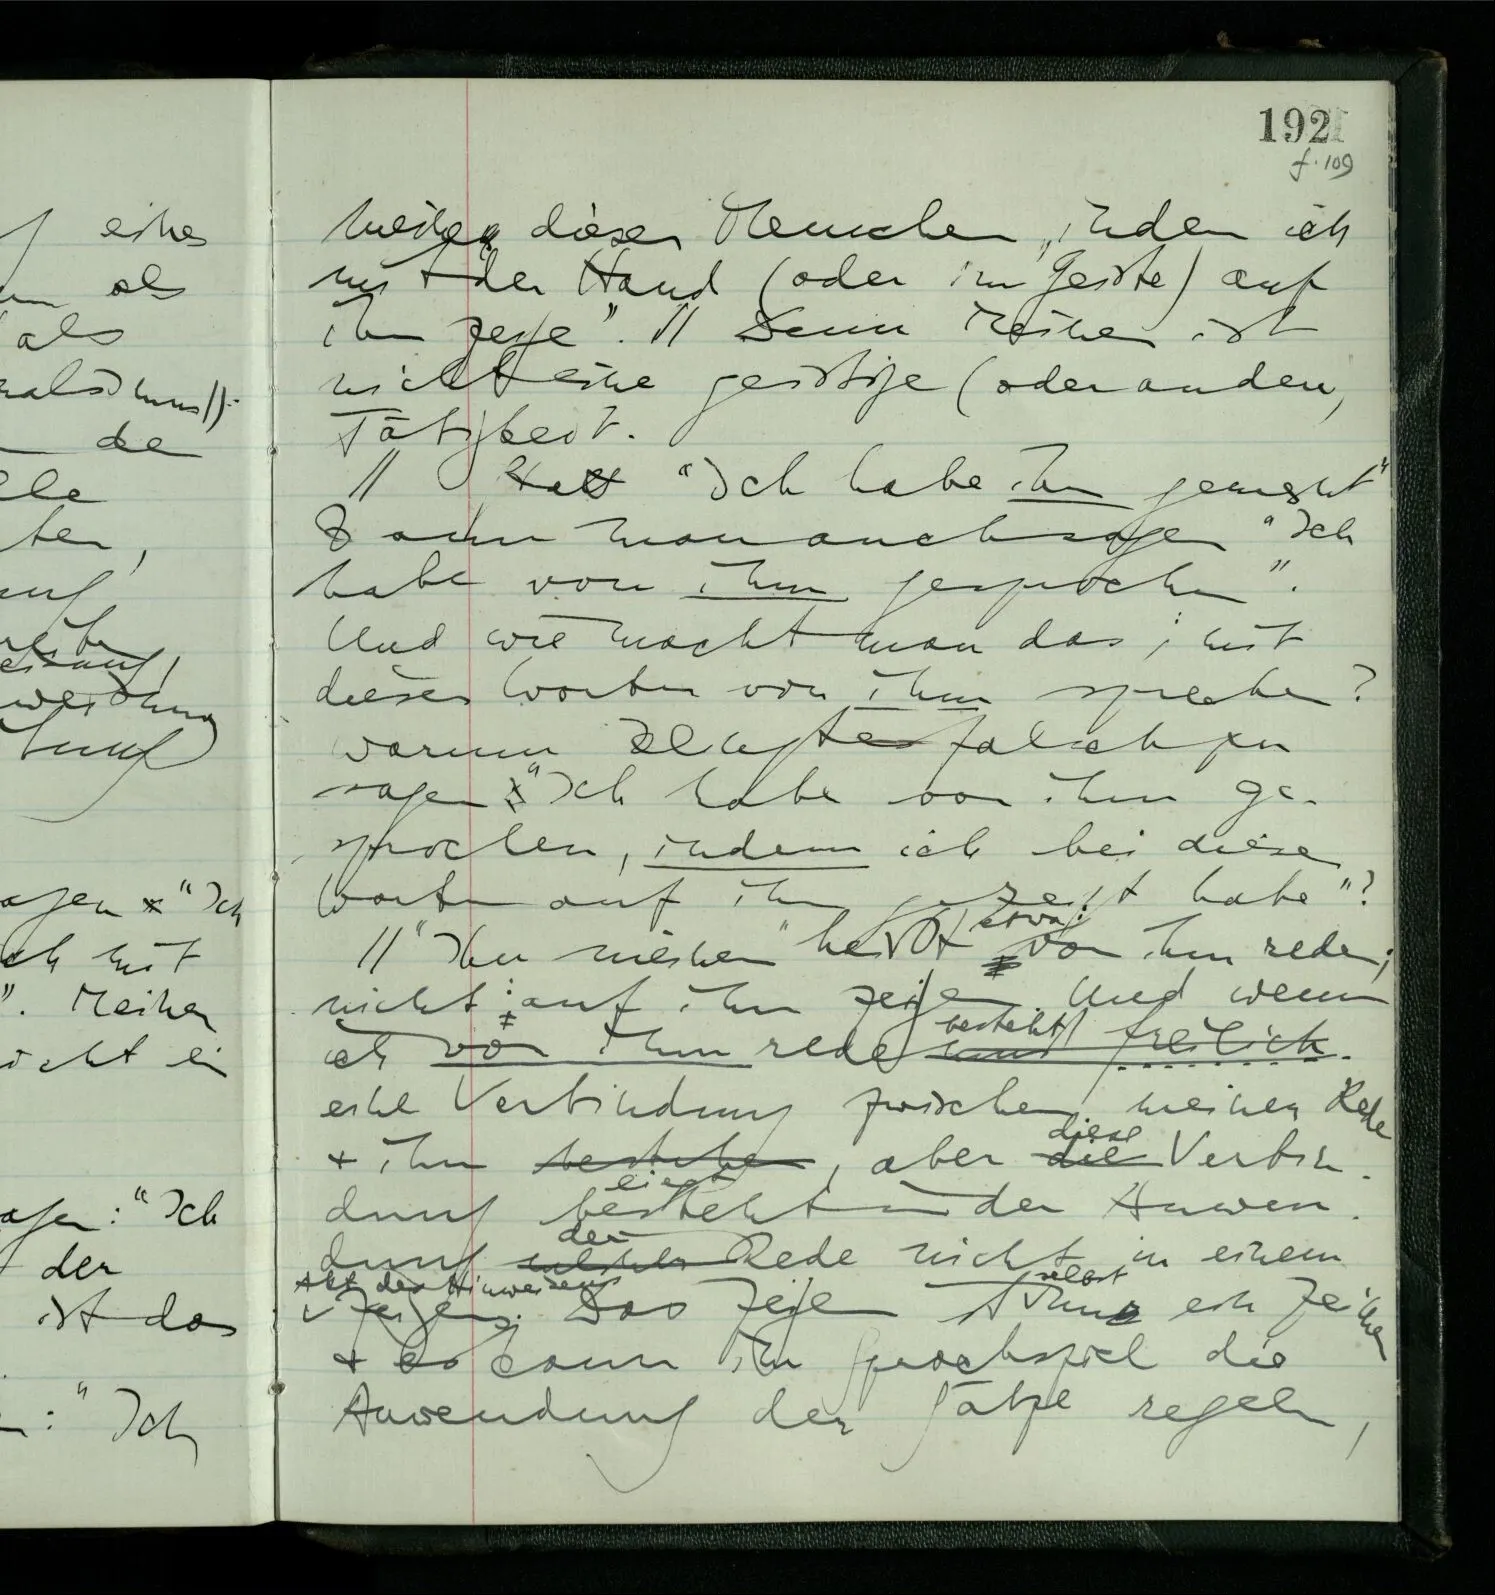 eines
als
als
de
ten,
192
f. 109
meinen diesen Menschen, indem ich
mit der Hand (oder im Geiste) auf
ihn zeige". // Denn Meinen ist
nicht eine geistige (oder andere)
Tätigkeit.
// Statt "Ich habe ihn gemeint"
kann man auch sagen "Ich
habe von ihm gesprochen".
Und wie macht man das, mit
diesen Worten von ihm sprechen?
Warum klingt es falsch zu
sagen "Ich habe von ihm ge-
sprochen, indem ich bei diesen
Worten auf ihn gezeigt habe"?
// "Ihn meinen" heißt etwa: von ihm reden;
nicht: auf ihn zeigen. Und wenn
ich von ihm rede besteht freilich
eine Verbindung zwischen meiner Rede
+ ihm bestehen, aber diese die Verbin-
dung liegt besteht in der Anwen-
dung der Rede nicht in einem
Akt des Hinweisens
Zeigens. Das Zeigen ist selbst ein Zeichen
+ es kann im Sprachspiel die
Anwendung der Sätze regeln,
agen "Ich
ch mit
". Meinen
icht ein
agen: "Ich
der
ist das
: "Ich